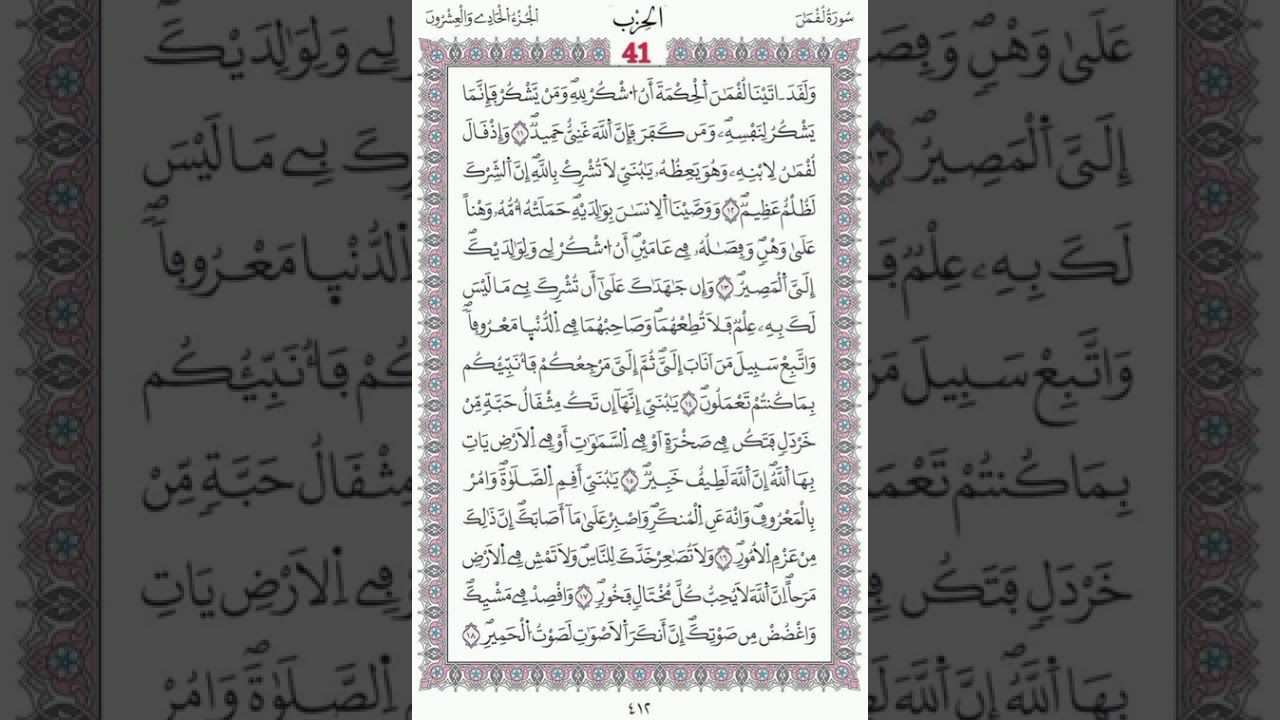 سُورَةُ لُقْمَٰنَ
الحِزْب
الْجُزْءُ الْحَادِے وَالْعِشْرُونَ
41
وَلَقَدَ ـ اتَيْنَا لُقْمَٰنَ اَ۬لْحِكْمَةَ أَنُ اُ۟شْكُرْ لِلهِۖ وَمَنْ يَّشْكُرْ فَإِنَّمَا
يَشْكُرُ لِنَفْسِهِۦۖ وَمَن كَفَرَ فَإِنَّ اَ۬للَّهَ غَنِيٌّ حَمِيدٞۖ ١١ وَإِذْ قَالَ
لُقْمَٰنُ لِابْنِهِۦ وَهُوَ يَعِظُهُۥ يَٰبُنَيِّ لَا تُشْرِكْ بِاللَّهِۖ إِنَّ اَ۬لشِّرْكَ
لَظُلْمٌ عَظِيمٞۖ ١٢ وَوَصَّيْنَا اَ۬لِانسَٰنَ بِوَٰلِدَيْهِۖ حَمَلَتْهُ أُمُّهُۥ وَهْناً
عَلَىٰ وَهْنٖۖ وَفِصَٰلُهُۥ فِے عَامَيْنِۖ أَنُ اُ۟شْكُرْ لِے وَلِوَٰلِدَيْكَۖ
إِلَيَّ اَ۬لْمَصِيرُۖ ١٣ وَإِن جَٰهَدَاكَ عَلَىٰٓ أَن تُشْرِكَ بِے مَا لَيْسَ
لَكَ بِهِۦ عِلْمٞ فَلَا تُطِعْهُمَاۖ وَصَاحِبْهُمَا فِے اِ۬لدُّنْي۪ا مَعْرُوفاٗۖ
وَاتَّبِعْ سَبِيلَ مَنَ اَنَابَ إِلَيَّۖ ثُمَّ إِلَيَّ مَرْجِعُكُمْ فَأُنَبِّئُكُم
بِمَا كُنتُمْ تَعْمَلُونَۖ ١٤ يَٰبُنَيِّ إِنَّهَآ إِن تَكُ مِثْقَالُ حَبَّةٖ مِّنْ
خَرْدَلٖ فَتَكُن فِے صَخْرَةٍ اَوْ فِے اِ۬لسَّمَٰوَٰتِ أَوْ فِے اِ۬لَارْضِ يَاتِ
بِهَا اَ۬للَّهُۖ إِنَّ اَ۬للَّهَ لَطِيفٌ خَبِيرٞۖ ١٥ يَٰبُنَيِّ أَقِمِ اِ۬لصَّلَوٰةَ وَامُرْ
بِالْمَعْرُوفِۖ وَانْهَ عَنِ اِ۬لْمُنكَرِۖ وَاصْبِرْ عَلَىٰ مَآ أَصَابَكَۖ إِنَّ ذَٰلِكَ
مِنْ عَزْمِ اِ۬لُامُورِۖ ١٦ وَلَا تُصَٰعِرْ خَدَّكَ لِلنَّاسِۖ وَلَا تَمْشِ فِے اِ۬لَارْضِ
مَرَحاًۖ اِنَّ اَ۬للَّهَ لَا يُحِبُّ كُلَّ مُخْتَالٖ فَخُورٖۖ ١٧ وَاقْصِدْ فِے مَشْيِكَۖ
وَاغْضُضْ مِن صَوْتِكَۖ إِنَّ أَنكَرَ اَ۬لَاصْوَٰتِ لَصَوْتُ اُ۬لْحَمِيرِۖ ١٨
٤١٢